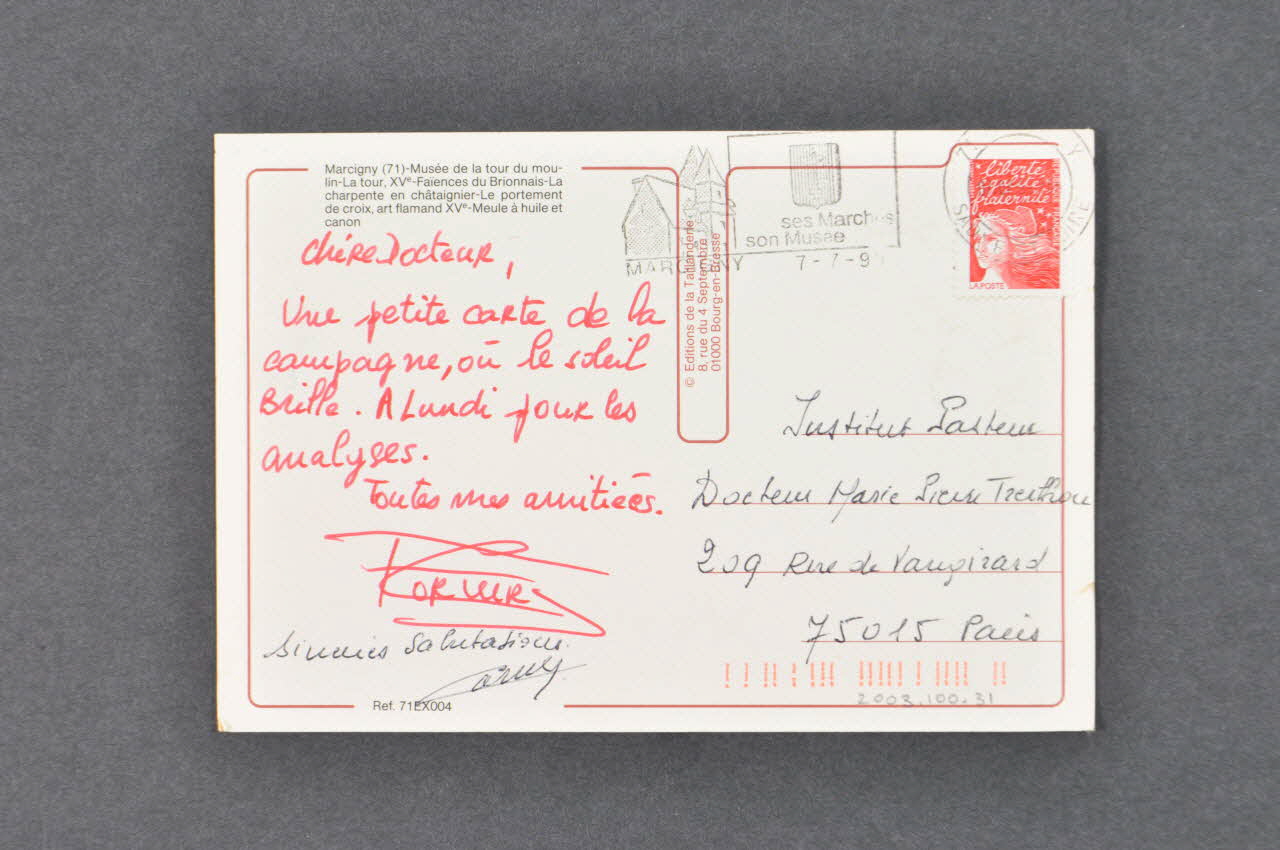 Marcigny (71)-Musée de la tour du mou-
lin-La tour, XVe-Faïences du Brionnais-La
charpente en châtaignier-Le portement
de croix, art flamand XVe-Meule à huile et
canon
chère Docteur,
Une petite carte de la
campagne, où le soleil
Brille. A Lundi pour les
analyses.
Toutes mes amitiées.
sincères Salutations.
Ref. 71EX004
© Editions de la Taillanderie
8, rue du 4 Septembre
01000 Bourg-en-Bresse
MARCIGNY
ses Marchés
son Musée
7-7-9
liberté
égalité
fraternité
LA POSTE
Institut Pasteur
Docteur Marie Pierre
209 Rue de Vaugirard
75015 Paris
2003.100.31